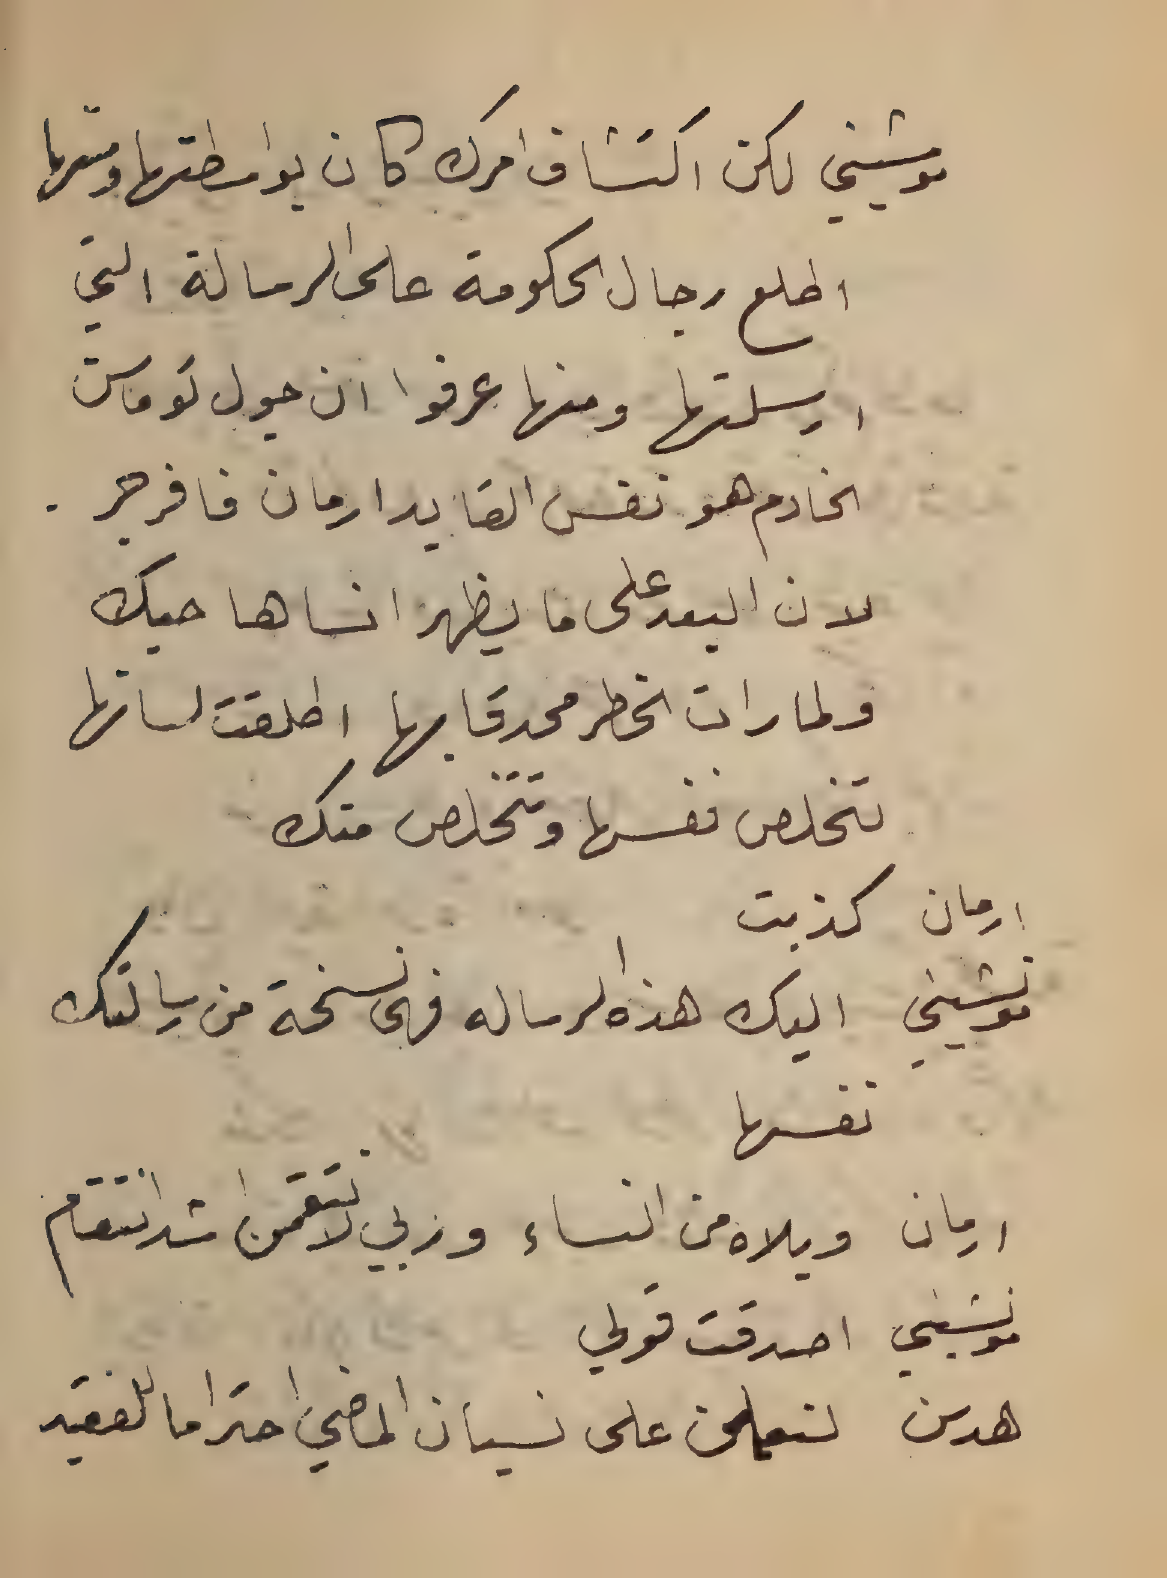 مونشيني لكن اكتشاف امرك كان بواسطتها ومنها
اطلع رجال الحكومة على الرسالة التي
ارسلتها ومنها عرفوا ان جول توماس
الخادم هو نفس القايد ارمان فافرجر .
لان البعد على ما يظهر انساها حبك
ولما رات الخطر محدقا بها اطلقت لسانها
لتخلص نفسها وتتخلص منك
ارمان كذبت
مونشيني اليك هذه الرساله فهى نسخة من رسالتك
نفسها
ارمان ويلاه من النساء وربي لانتقمن اشد انتقام
مونشيني اصدقت قولي
هدسن على نسيان الماضي احتراما للفقيد